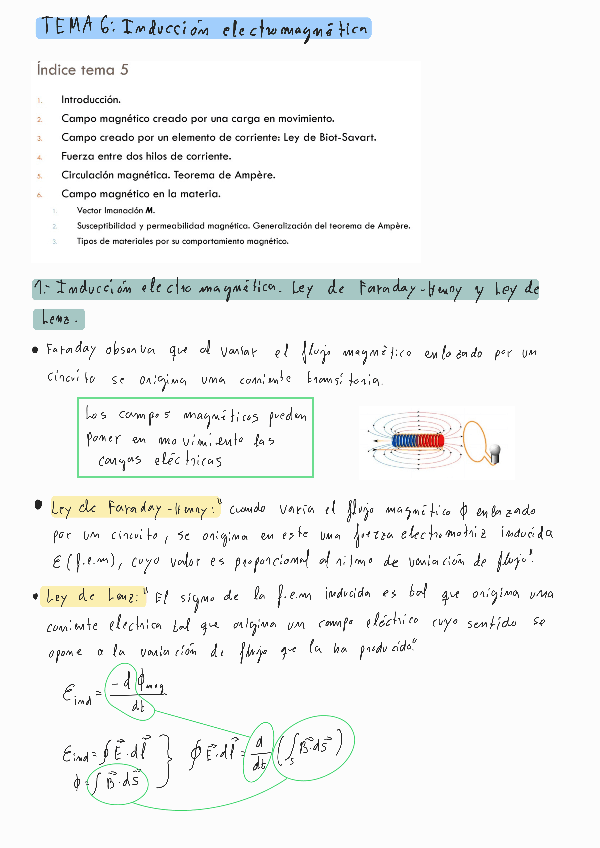 TEMA 6: Inducción electromagnética
Índice tema 5
1. Introducción.
2. Campo magnético creado por una carga en movimiento.
3. Campo creado por un elemento de corriente: Ley de Biot-Savart.
4. Fuerza entre dos hilos de corriente.
5. Circulación magnética. Teorema de Ampère.
6. Campo magnético en la materia.
1. Vector Imanación M.
2. Susceptibilidad y permeabilidad magnética. Generalización del teorema de Ampère.
3. Tipos de materiales por su comportamiento magnético.
1.- Inducción electromagnética. Ley de Faraday-Henry y Ley de
Lenz.
• Faraday observa que al variar el flujo magnético enlazado por un
circuito se origina una corriente transitoria.
Los campos magnéticos pueden
poner en movimiento las
cargas eléctricas
• Ley de Faraday-Henry: "cuando varía el flujo magnético ϕ enlazado
por un circuito, se origina en este una fuerza electromotriz inducida
ε (f.e.m), cuyo valor es proporcional al ritmo de variación de flujo".
• Ley de Lenz: "El signo de la f.e.m inducida es tal que origina una
corriente electrica tal que origina un campo eléctrico cuyo sentido se
opone a la variación de flujo que la ha producido"
ε ind = -d ϕ mag / dt
ε ind = ∮ E⃗ · dl⃗ } ∮ E⃗ · dl⃗ = d/dt ( ∫s B⃗ · ds⃗ )
ϕ = ∫ B⃗ · ds⃗